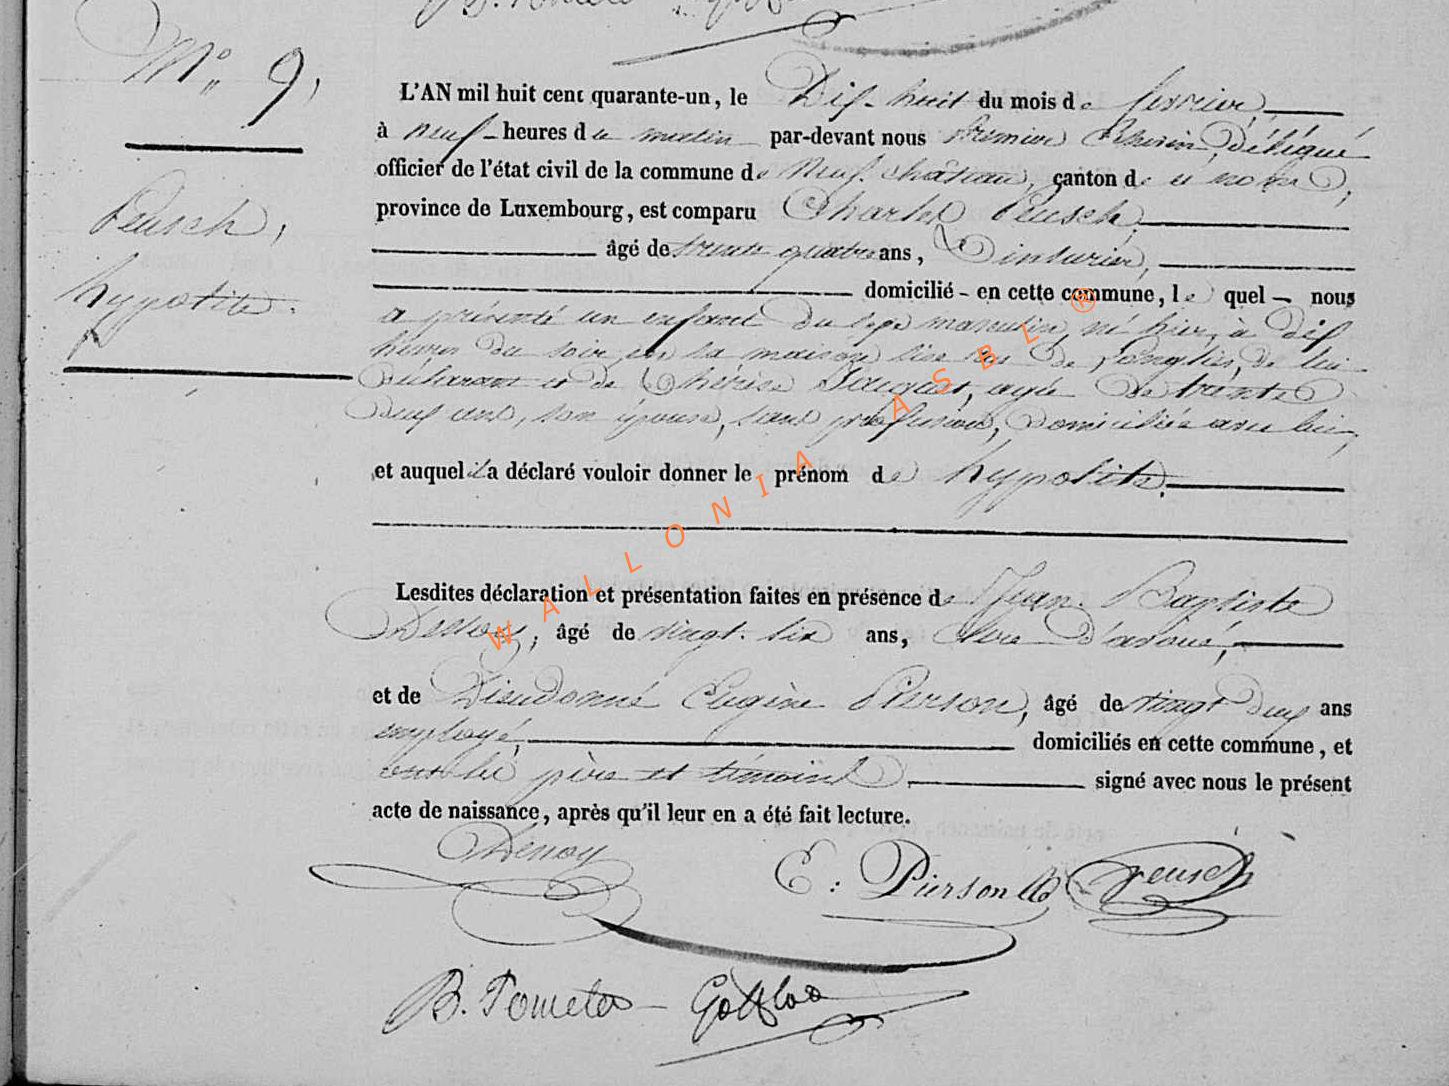 N° 9,
L'AN mil huit cent quarante-un, le Dix-huit du mois de fevrier,
à neuf heures du matin par-devant nous Echevin, délégué
officier de l'état civil de la commune de Neufchâteau, canton de
province de Luxembourg, est comparu Charles Peusch,
Peusch,
âgé de trente quatre ans, Teinturier,
hypolite.
domicilié - en cette commune, le quel — nous
a présenté un enfant du sexe masculin, né hier, à dix
heures du soir en sa maison sise rue de de lui
déclarant et de Thérèse Jacquet, agée de trente
deux ans, son épouse, sans profession, domiciliée avec lui,
et auquel il a déclaré vouloir donner le prénom de hypolite.
Lesdites déclaration et présentation faites en présence de Jean Baptiste
âgé de vingt-six ans, clerc d'avoué,
et de Dieudonné Eugène Pierson, âgé de vingt deux ans
employé, domiciliés en cette commune, et
ont les père et témoins signé avec nous le présent
acte de naissance, après qu'il leur en a été fait lecture.
E: Pierson Peusch
WALLONIA ASBL ®